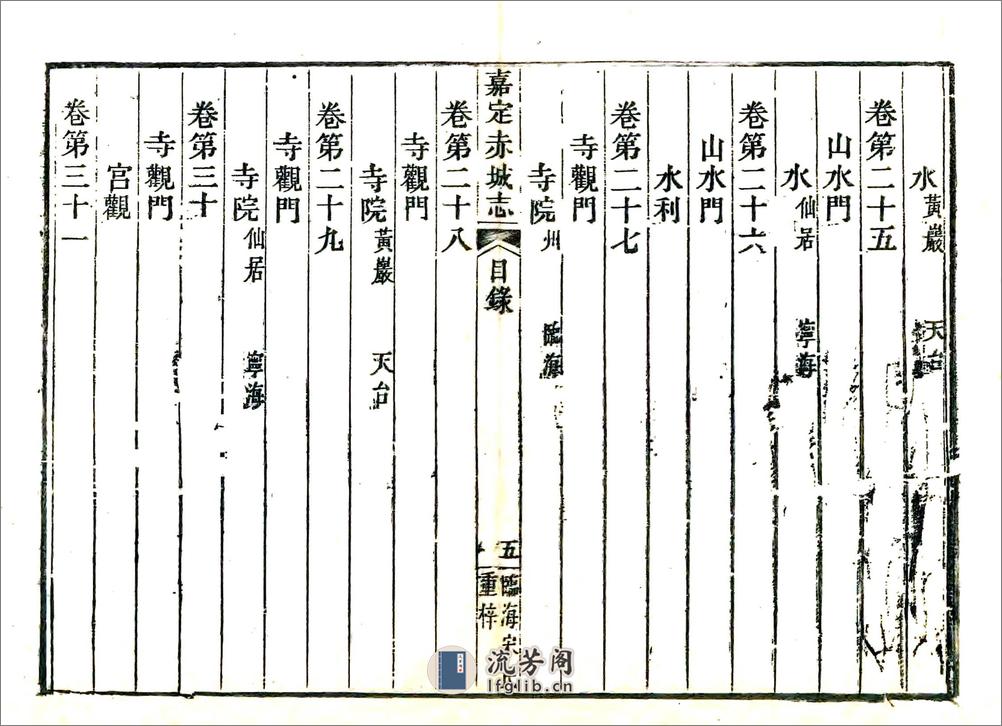 水 黃巖 天台
卷第二十五
山水門
水 仙居 寧海
卷第二十六
山水門
水利
卷第二十七
寺觀門
寺院 州 臨海
嘉定赤城志 目錄 五 臨海宋氏重梓
卷第二十八
寺觀門
寺院 黃巖 天台
卷第二十九
寺觀門
寺院 仙居 寧海
卷第三十
寺觀門
宮觀
卷第三十一
流芳阁
lfglib.cn